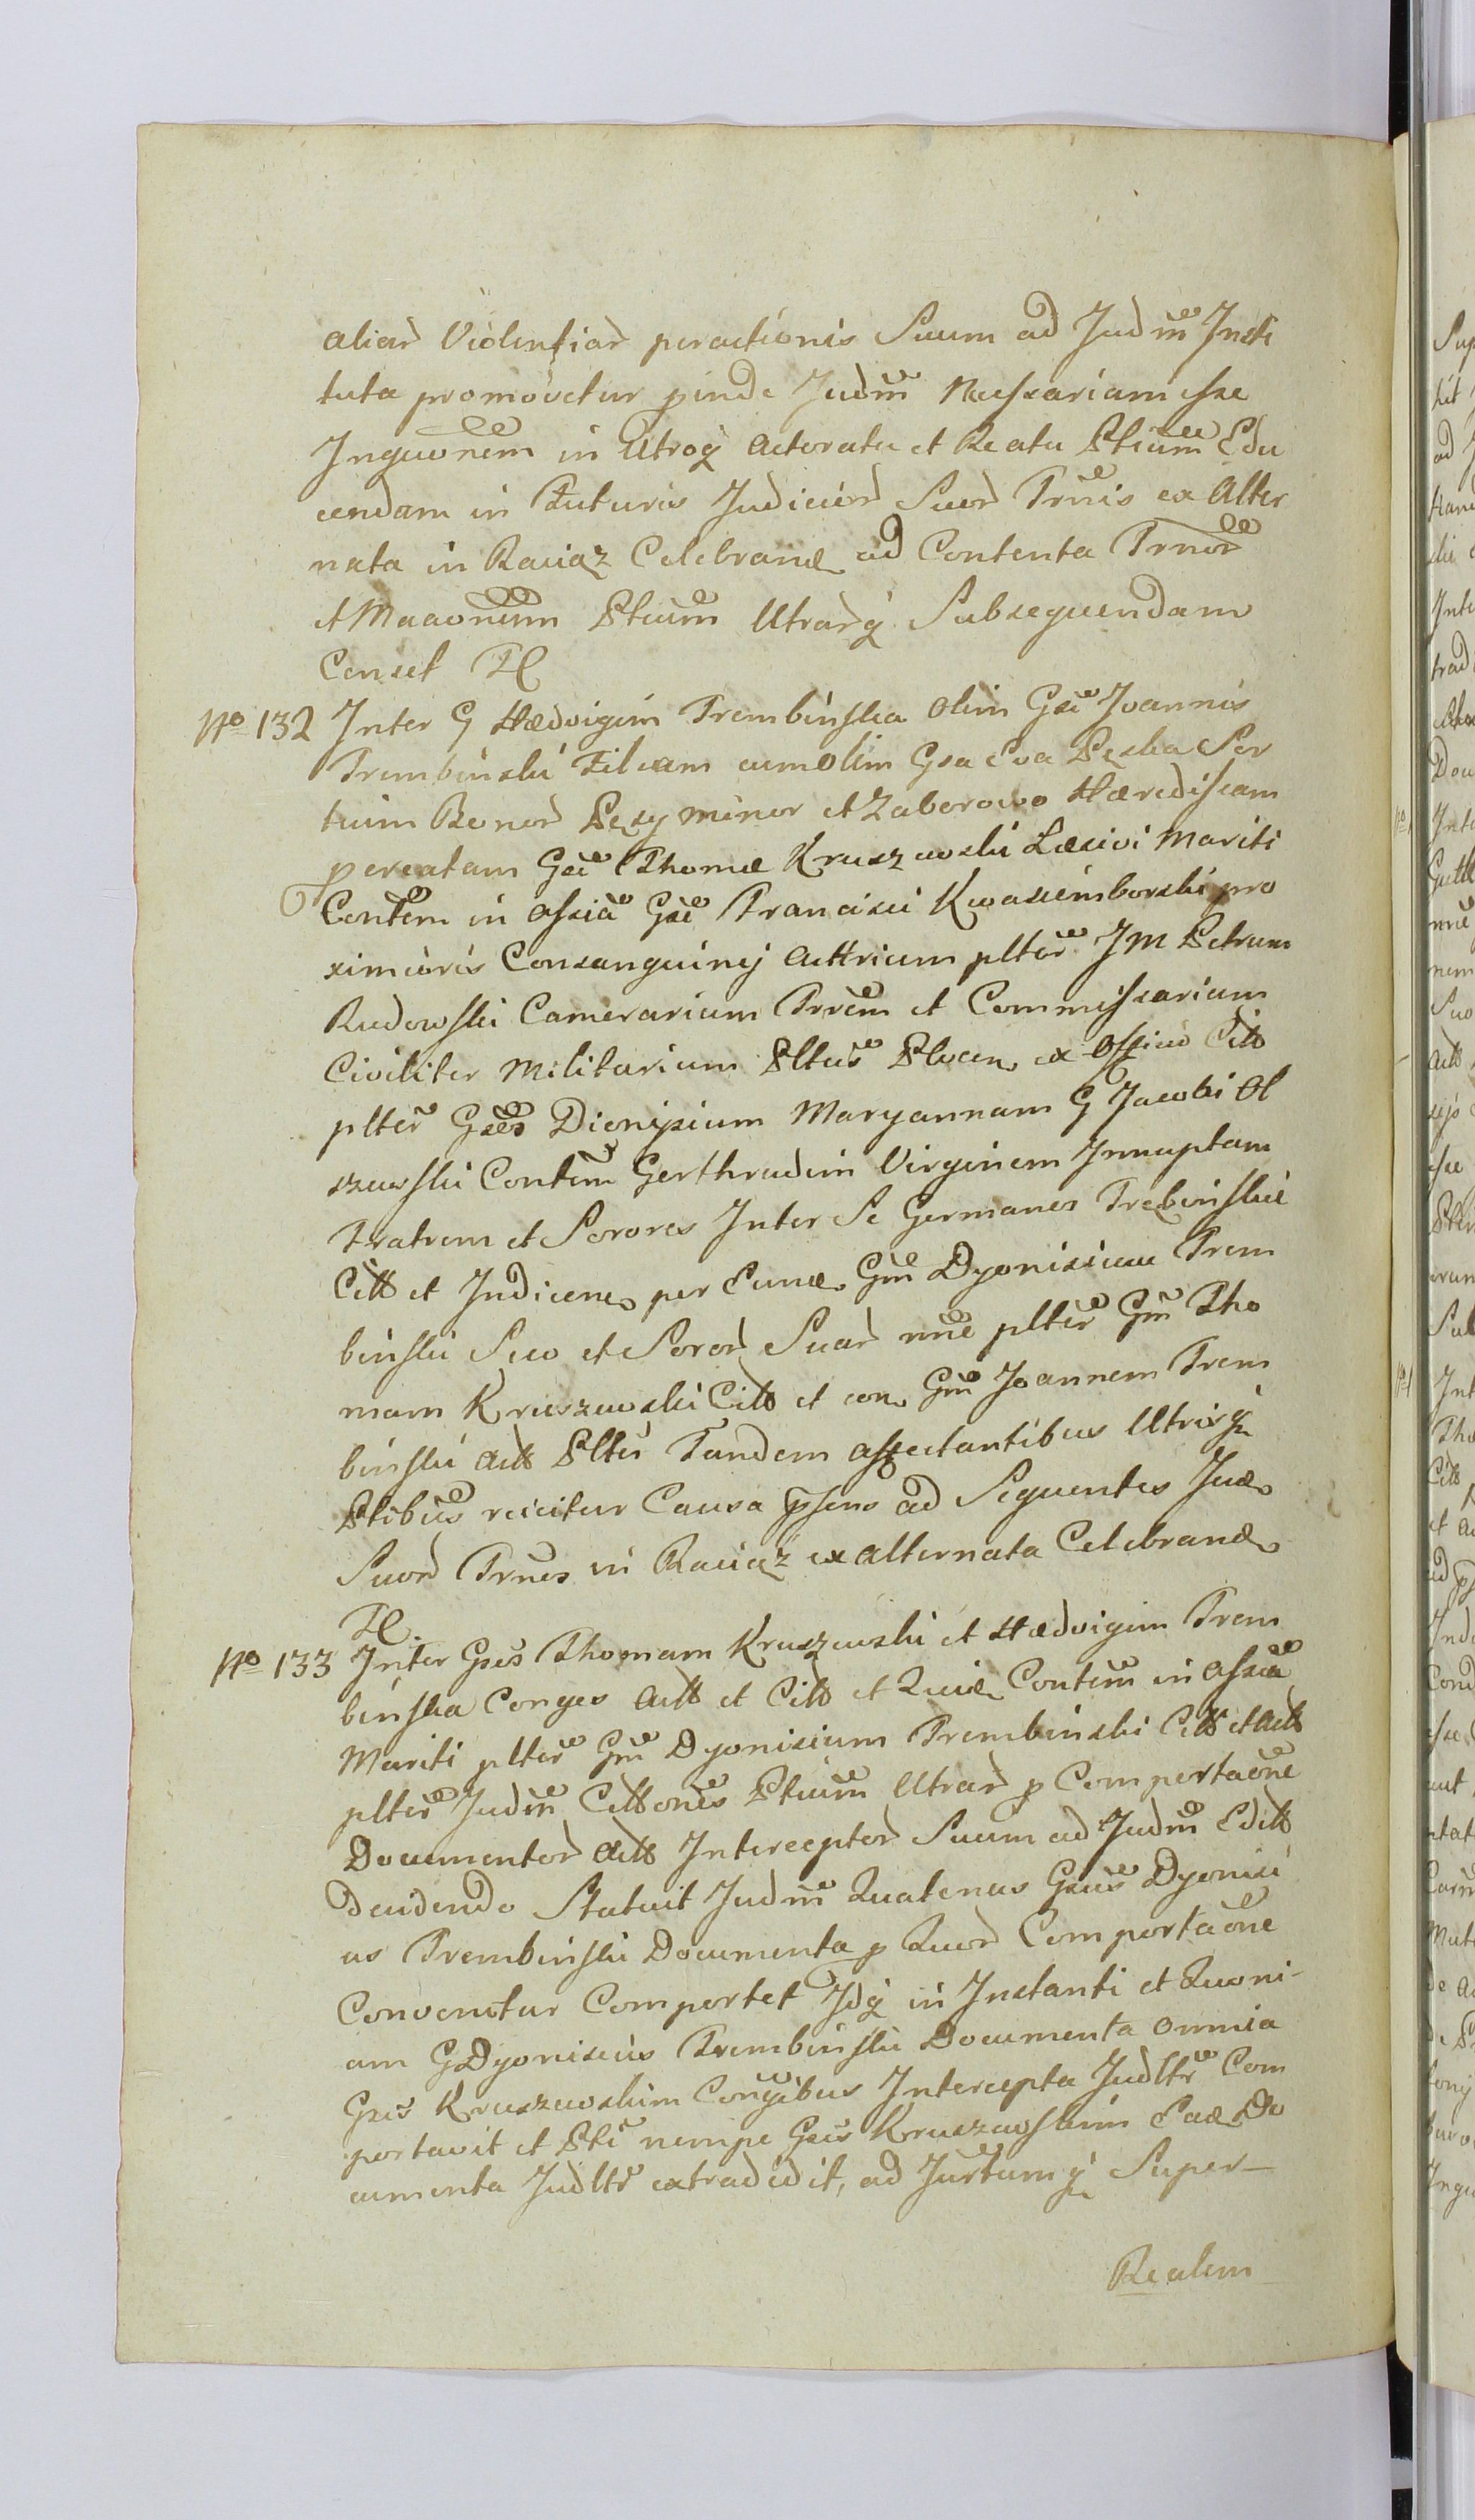 aliar Violentiar peractionis Suum ad Judm Insti
tuta promovetur pinde Judm Necessariam esse
Inquonem in Utroq Actoratu et Reatu Ptium Edu
cendam in Futuris Judicior Suor Trnis ex Alter
nata in Raciąz Celebrand ad Contenta Trnor
et Maaonum Ptium Utrarq Subsequendam
Censet H
No 132 Inter G Hædvigim Trembinska Olim Gsi Joannis
Trembinski Filiam cum olim Gsa Eva Pęska Sor
tium Bonor Pęsy minor et Zaborowo Hæredissam
pcreatam Gsi Thomæ Kruszewski Læsivi Mariti
Contem in Assia Gsi Francisci Kwasimborski pro
ximioris Consanguinij Acttricem plter JM Petrum
Rudowski Camerarium Trrem et Commissarium
Civiliter Militarium Pltus Plocen ex Officio Citt
plter Gses Dionisium Maryannam G Jacobi Ol
szewski Contem Gerthrudim Virginem Innuptam
Fratrem et Sorores Inter Se Germanos Trębinskie
Citt et Indicene per Eund Gm Dyonisium Trem
binski Suo et Soror Suar nne plter Gm Tho
mam Kruszewski Citt et con Gm Joannem Trem
binski Actt Plter Tandem affectantibus Utrisq
Ptibus reiicitur Causa psens ad Sequentes Jud
Suor Trnos in Raciąz ex alternata Celebrand
H.
No 133 Inter Gses Thomam Kruszewski et Hædvigim Trem
binska Conges Actt et Citt et Quid Contem in Assia
Mariti plter Gm Dyonisium Trembinski Citt et Actt
plter Judm Cittones Ptium Utrar p Comportaone
Documentor Actt Interceptor Suum ad Judm Editt
Decidendo Statuit Judm Quatenus Gsus Dyonisi
us Trembinski Documenta p Quor Comportaone
Convenitur Comportet Idq in Instanti et Quoni-
am G Dyonisius Trembinski Documenta omnia
Gsis Kruszewskim Congibus Intercepta Judltr Com
portavit et Pti nempe Gsis Kruszewskim Ead Do
cumenta Judltr extradidit, ad Jurtumq Super-
Realem